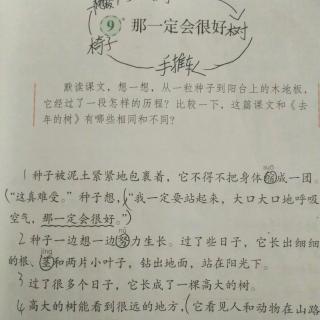 9 那一定会很好
树
椅子
手推车
默读课文，想一想，从一粒种子到阳台上的木地板，
它经过了一段怎样的历程？比较一下，这篇课文和《去
年的树》有哪些相同和不同？
1 种子被泥土紧紧地包裹着，它不得不把身体缩成一团。
“这真难受。”种子想，“我一定要站起来，大口大口地呼吸
空气，那一定会很好。”
2 种子一边想一边努力生长。过了些日子，它长出细细
的根、茎和两片小叶子，钻出地面，站在阳光下。
3 过了很多个日子，它长成了一棵高大的树。
4 高大的树能看到很远的地方，它看见人和动物在山路